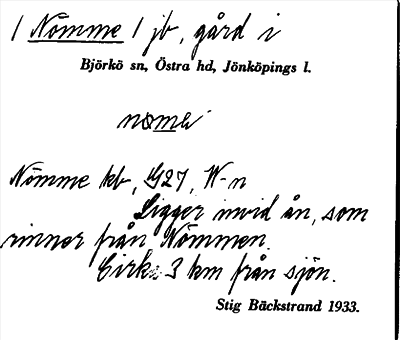 / Nömme / jb, gård i
Björkö sn, Östra hd, Jönköpings l.
Nömme kb, G27, W-n
Ligger invid ån, som
rinner från Nömmen.
Cirka 3 km från sjön.
Stig Bäckstrand 1933.